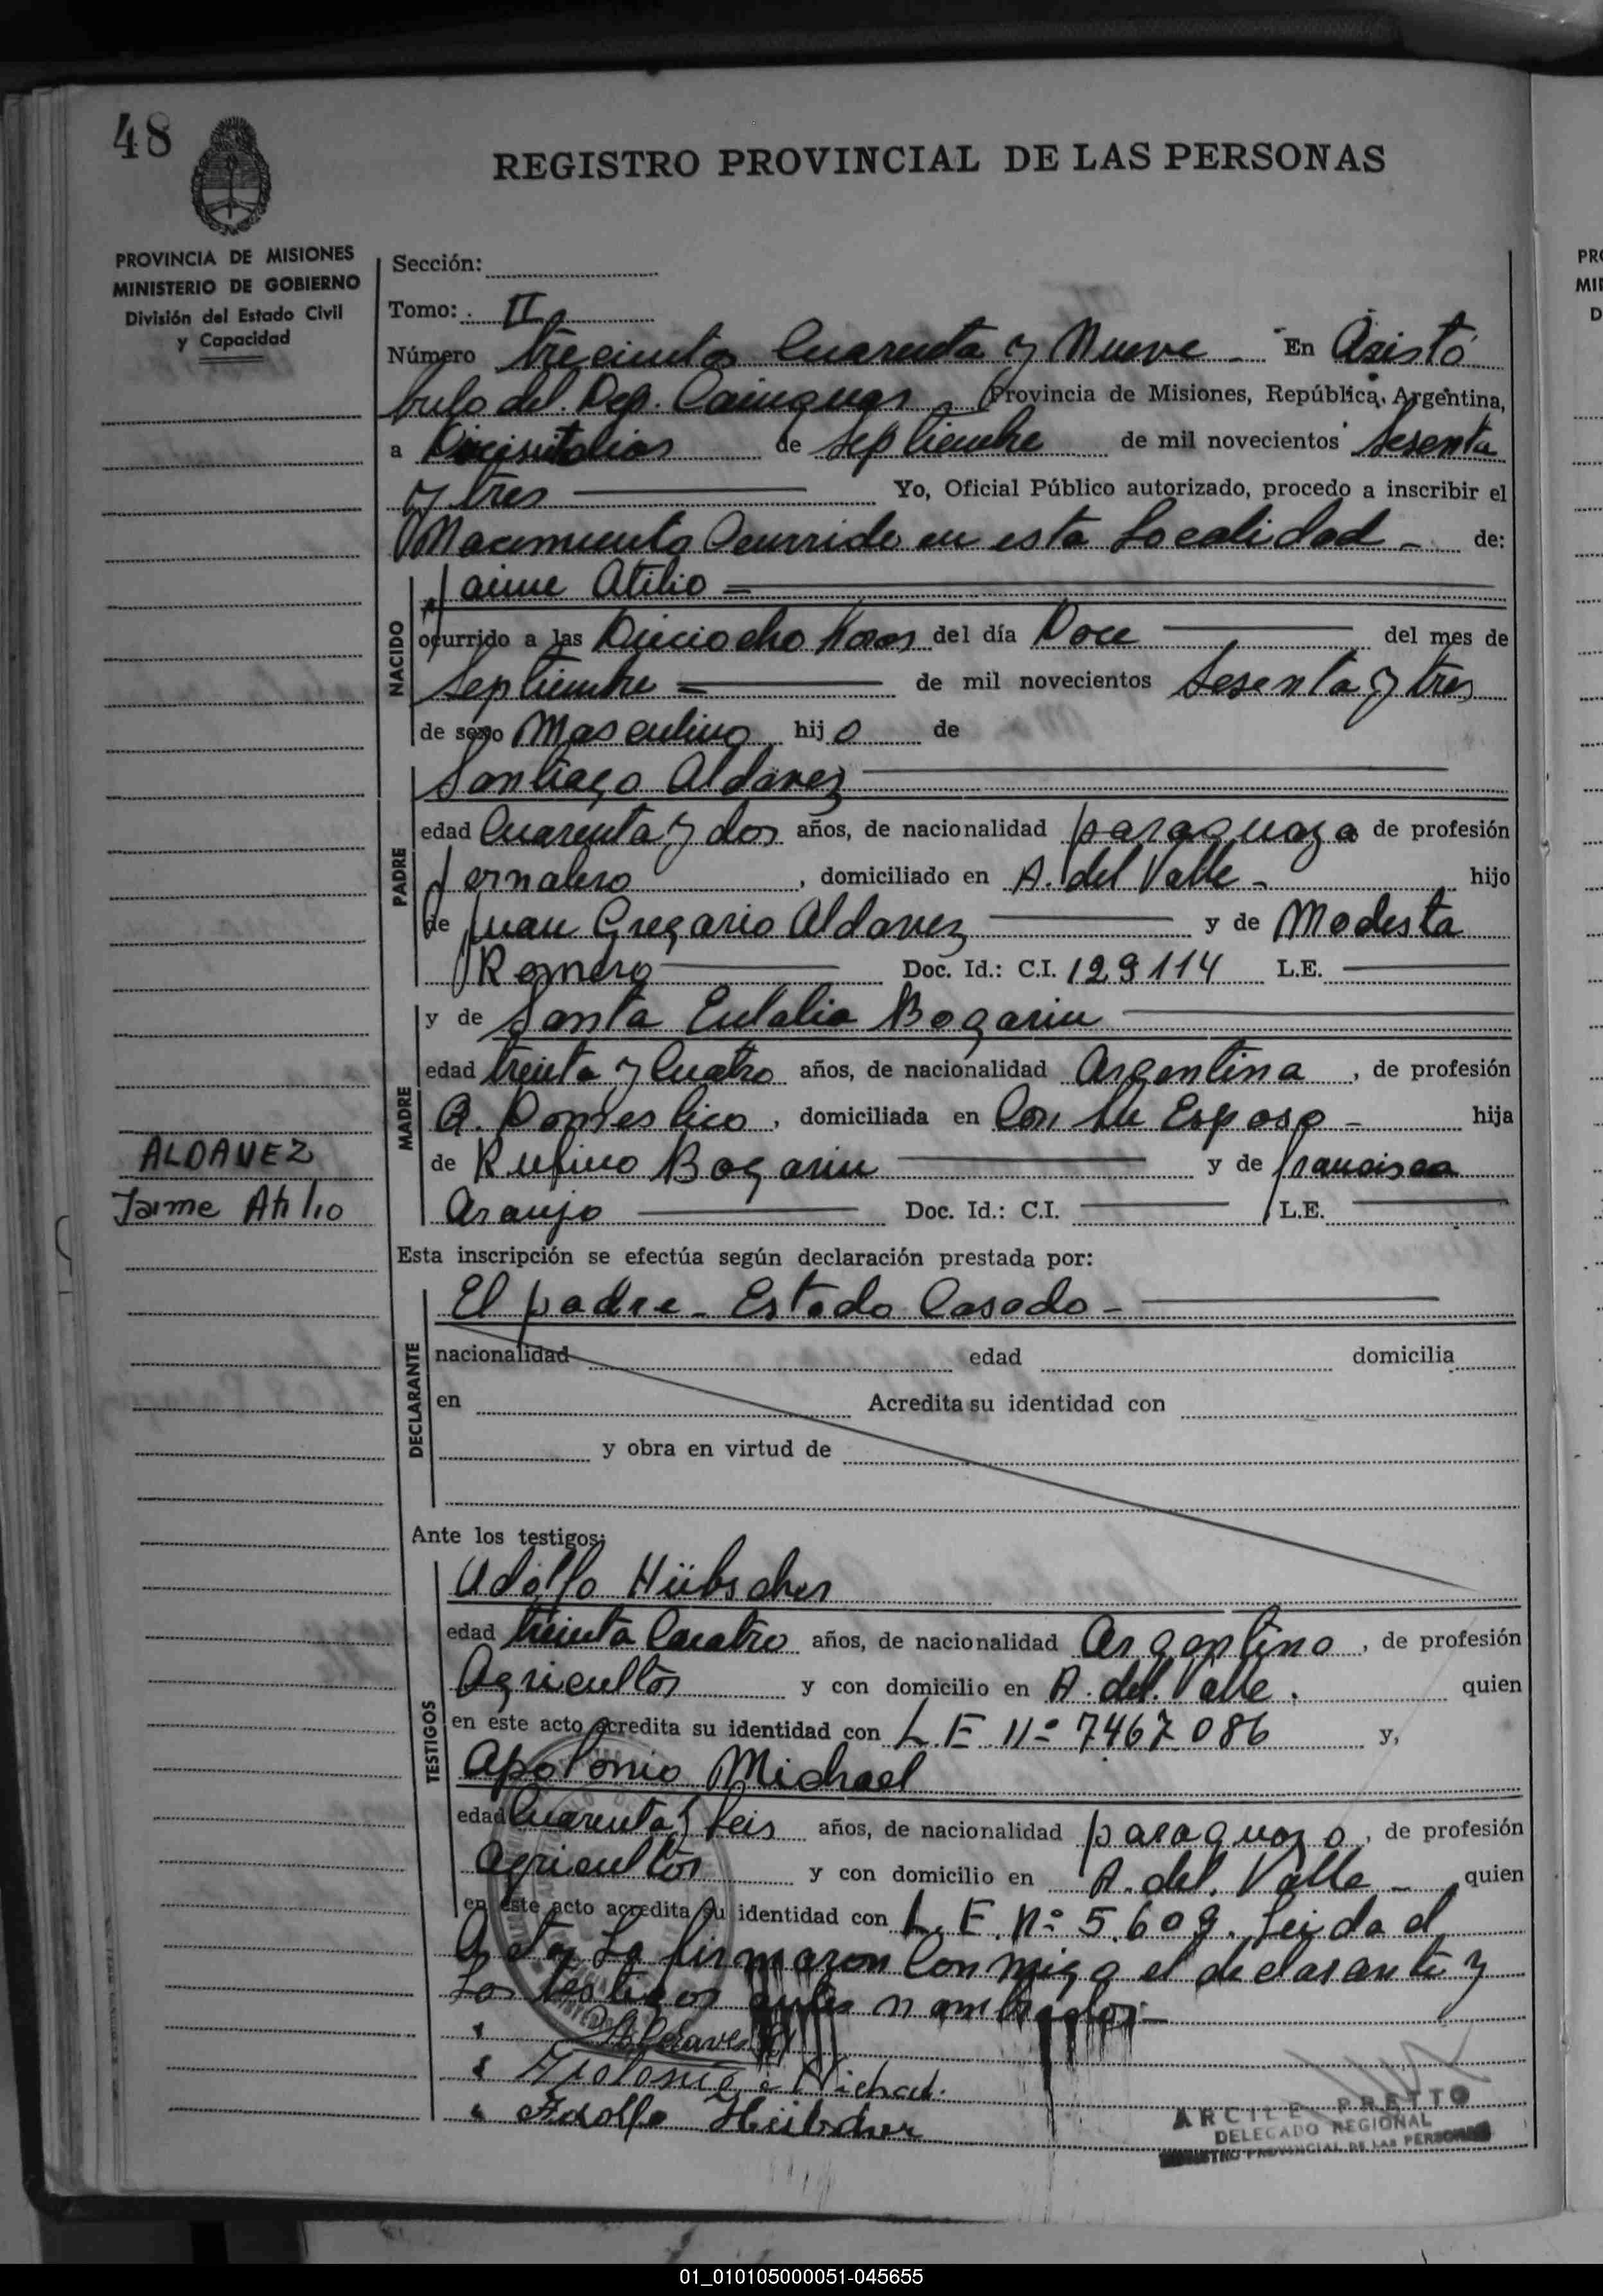 48
REGISTRO PROVINCIAL DE LAS PERSONAS
PROVINCIA DE MISIONES
MINISTERIO DE GOBIERNO
División del Estado Civil
y Capacidad
Sección:
Tomo: II
Número trecientos Cuarenta y Nueve En Aristó
bulo del. Dep. Cainguas Provincia de Misiones, República Argentina,
a Diecisiete dias de Septiembre de mil novecientos Sesenta
y tres Yo, Oficial Público autorizado, procedo a inscribir el
Nacimiento Ocurrido en esta Localidad de:
NACIDO
Jaime Atilio
ocurrido a las Dieciocho horas del día Doce del mes de
Septiembre de mil novecientos Sesenta y tres
de sexo Masculino hijo de
PADRE
Santiago Aldavez
edad Cuarenta y dos años, de nacionalidad paraguaya de profesión
Jornalero, domiciliado en A. del Valle hijo
de Juan Gregorio Aldavez y de Modesta
Romero Doc. Id.: C.I. 129114 L.E.
MADRE
y de Santa Eulalia Bogarin
edad treinta y Cuatro años, de nacionalidad Argentina, de profesión
Q. Domestico, domiciliada en Con Su Esposo hija
de Rufino Bogarin y de francisca
Araujo Doc. Id.: C.I. L.E.
ALDAVEZ
Jaime Atilio
Esta inscripción se efectúa según declaración prestada por:
DECLARANTE
El padre - Estado Casado -
nacionalidad edad domicilia
en Acredita su identidad con
y obra en virtud de
Ante los testigos:
TESTIGOS
Adolfo Hübscher
edad treinta Cuatro años, de nacionalidad Argentino, de profesión
Agricultor y con domicilio en A. del. Valle. quien
en este acto acredita su identidad con L.E. Nº 7467.086 y,
Apolonio Michael
edad Cuarenta y Seis años, de nacionalidad paraguayo, de profesión
Agricultor y con domicilio en A. del. Valle - quien
en este acto acredita su identidad con L.E. Nº 5.609. Leida el
Acta, La firmaron Conmigo el declarante y
Los testigos antes nombrados -
Apolonio Michael.
Adolfo Hübscher
ARCILE PRETTO
DELEGADO REGIONAL
REGISTRO PROVINCIAL DE LAS PERSONAS
01_010105000051-045655